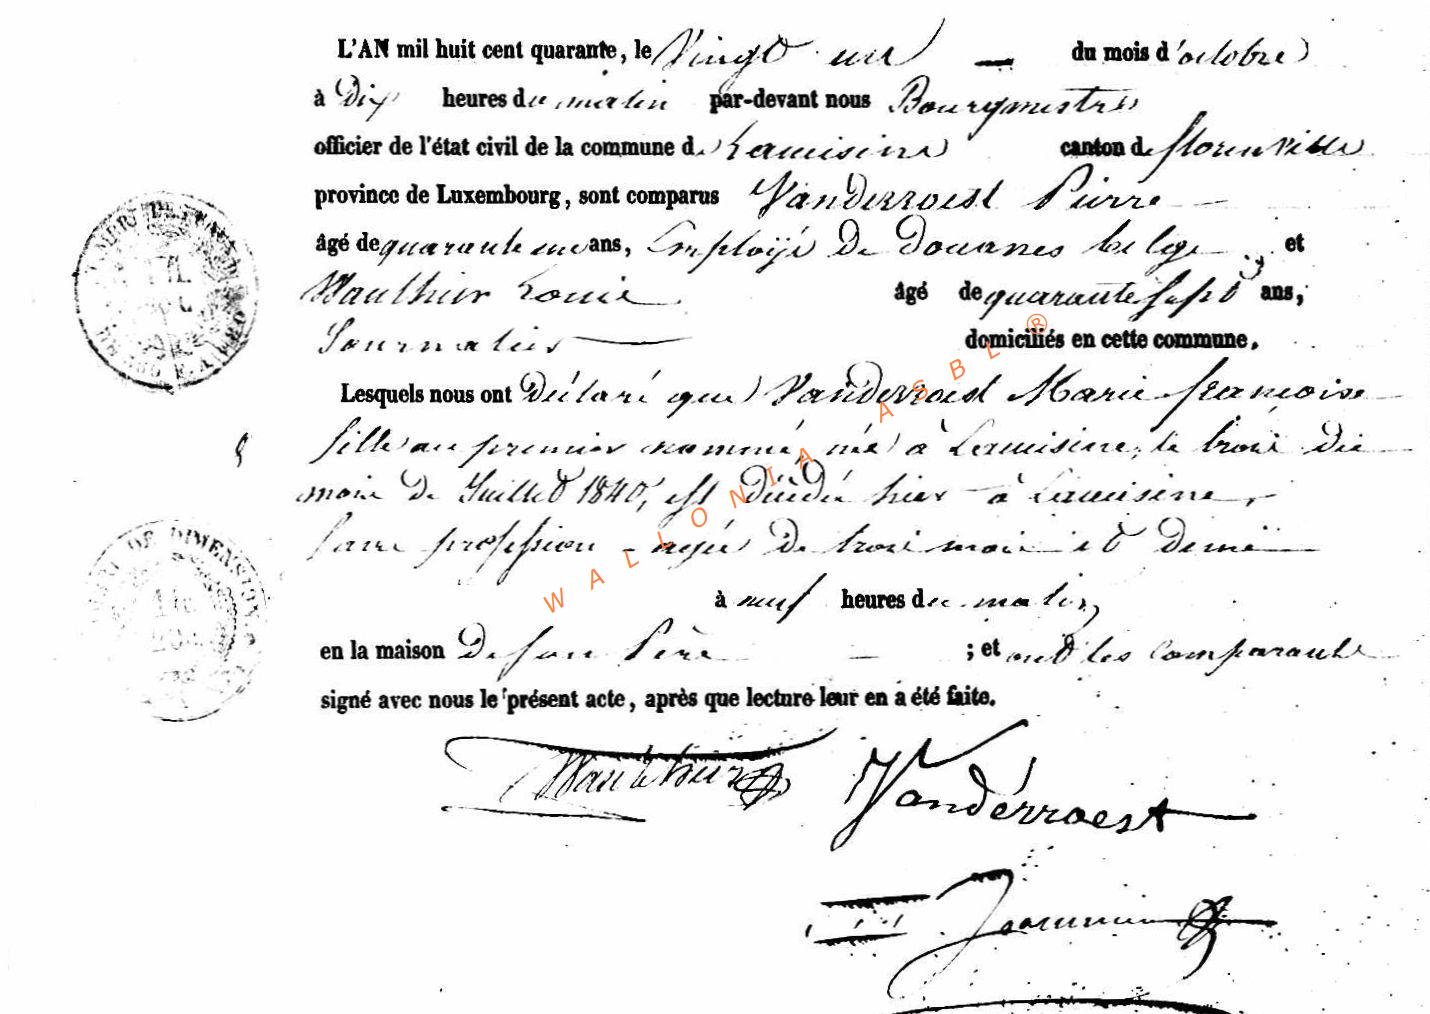 L'AN mil huit cent quarante, le Vingt un — du mois d'octobre
à Dix heures du matin par-devant nous Bourgmestre
officier de l'état civil de la commune de Lacuisine canton de florenville
province de Luxembourg, sont comparus Vanderroest Pierre
âgé de quarante un ans, Employé de Douanes belge et
Wauthier Louis âgé de quarante sept ans,
Journalier domiciliés en cette commune.
Lesquels nous ont Déclaré que Vanderroest Marie françoise
fille au premier nommé, née à Lacuisine, le trois du
mois de Juillet 1840, est décédée hier à Lacuisine,
sans profession - agée de trois mois et demie
à neuf heures du matin
en la maison de son Père ; et ont les comparants
signé avec nous le présent acte, après que lecture leur en a été faite.
Wauthier Vandérroest
WALLONIA ASBL ®
DE DIMENSION